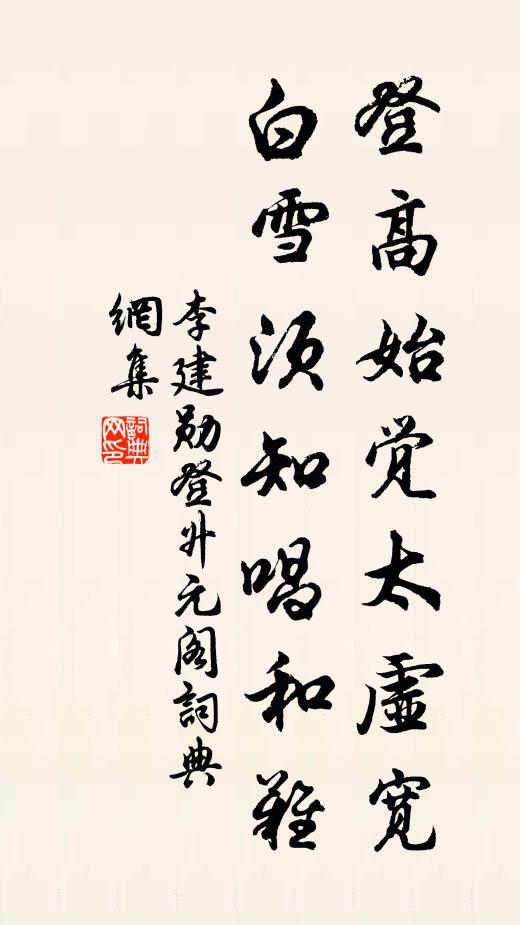 登高始觉太虚宽
白雪须知唱和难
李建勋登升元阁詞典
網集
詞典
网印